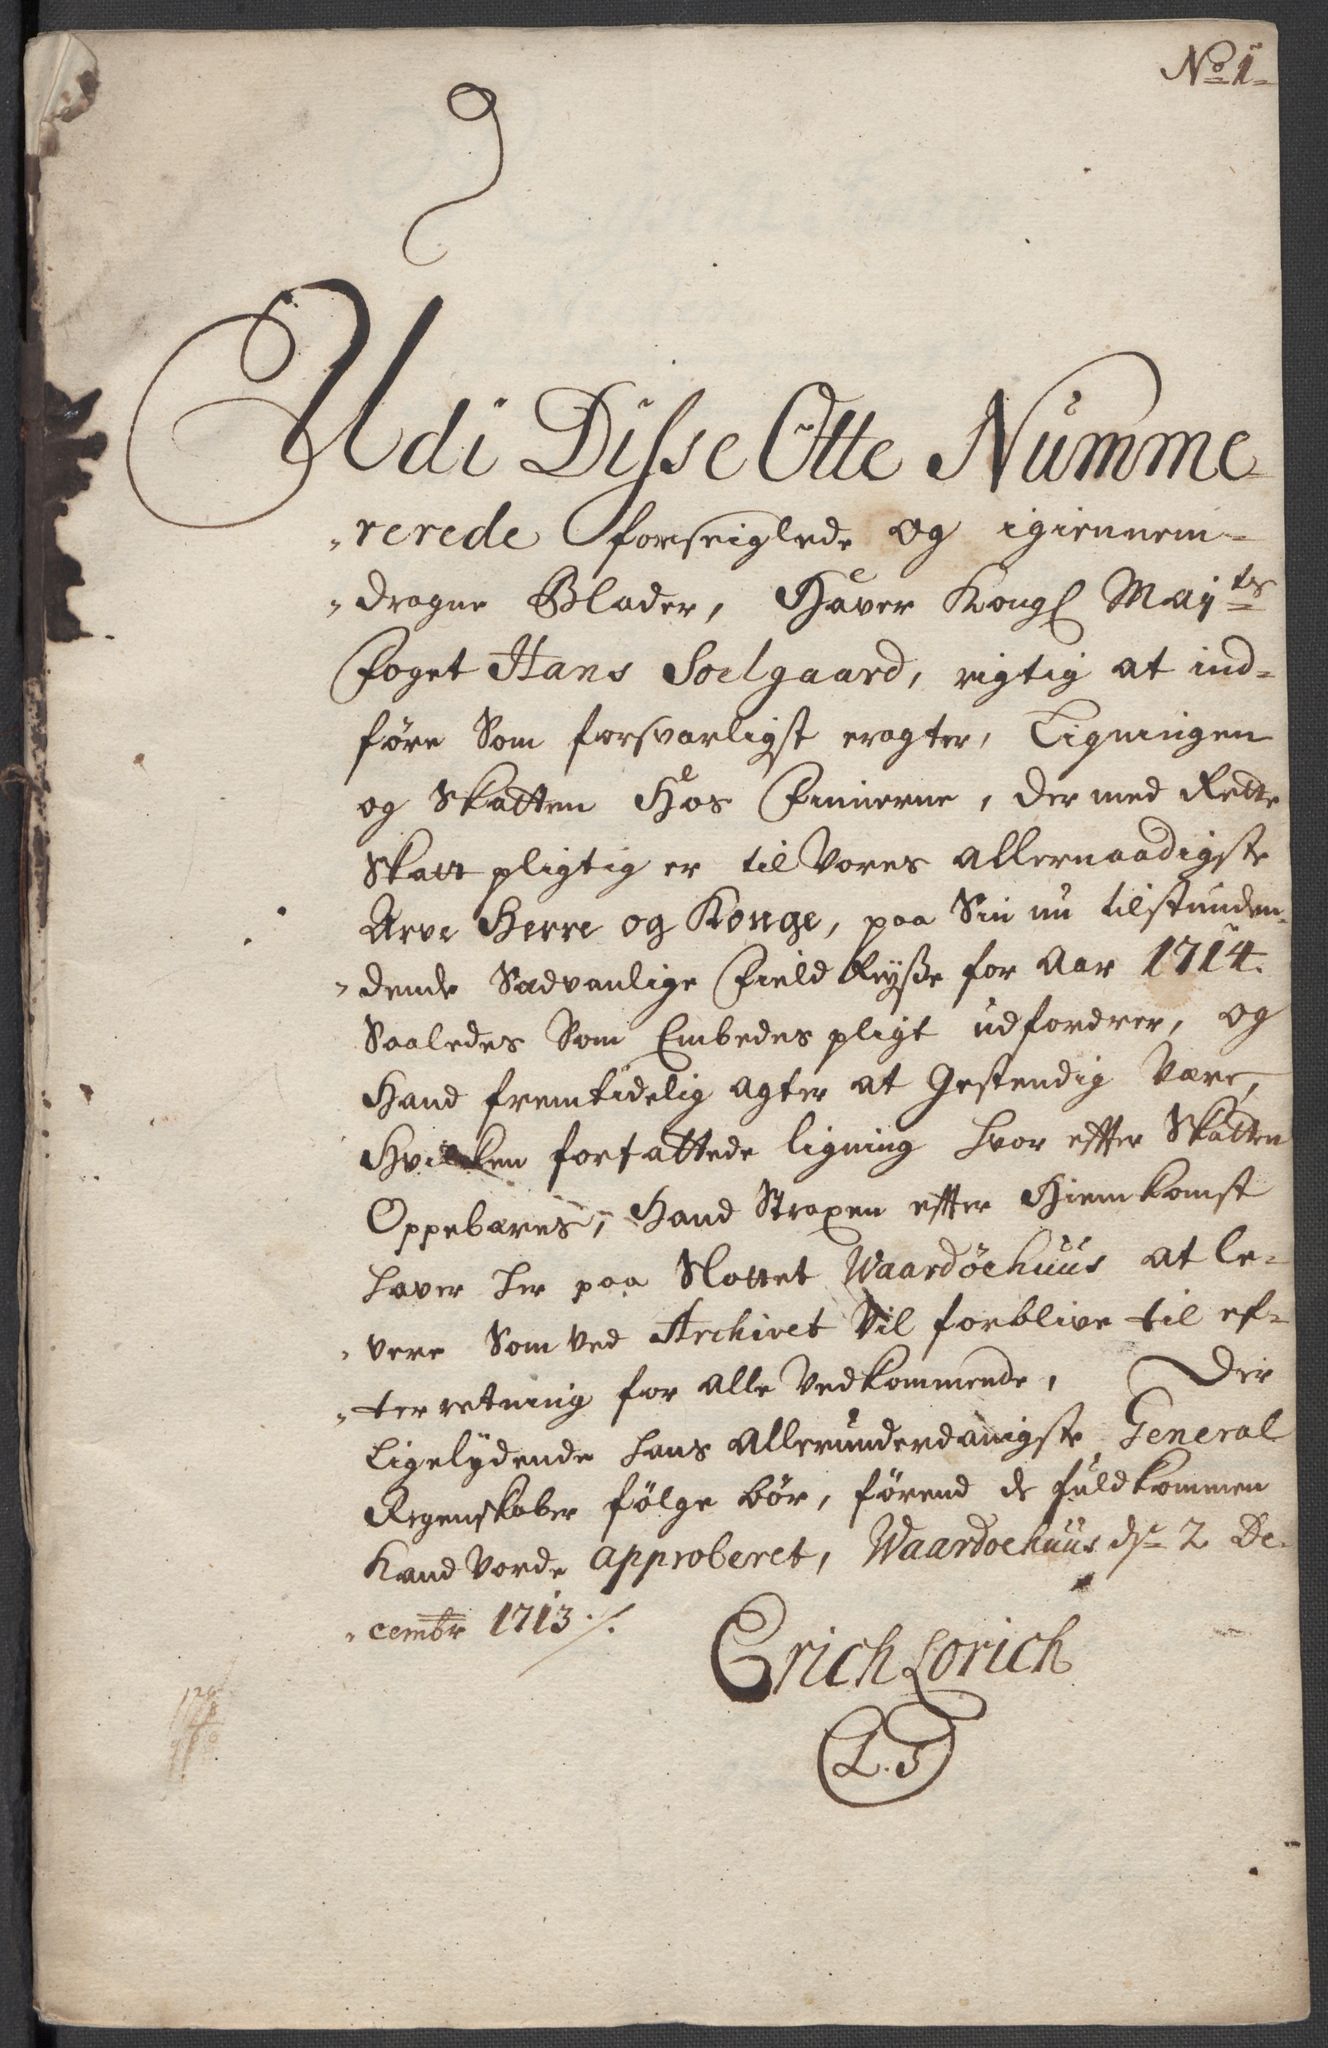 No 1
Udi Disse Otte Numme-
rerede forseiglede og igiennem-
dragne Blader, Haver Kongl Mayts
Foget Hans Soelgaard, rigtig at ind-
føre Som forsvarligst eragter, Ligningen
og Skatten Hos Finnerne, der med Rette
Skatt pligtig er til Vores allernaadigste
Arve Herre og Konge, paa Sin nu tilstunden-
dende Sædvanlige Field Reyße for Aar 1714.
Saaledes Som Embedes pligt udfordrer, og
Hand fremtidelig agter at Gestendig Være,
Hvilken forfattede ligning hvor effter Skatten
Oppebæres, Hand Straxen effter Hiemkomst
haver her paa Slottet Waardøehuus at le-
vere Som ved Archivet Vil forblive til ef-
terretning for alle Vedkommende, Der
Ligelydende hans Allerunderdanigste General
Regenskaber følge bør, førend de fuldkommen
Kand Vorde approberet, Waardoehuus ds 2 De-
cembr 1713 ./.
Erich Lorich
L. S